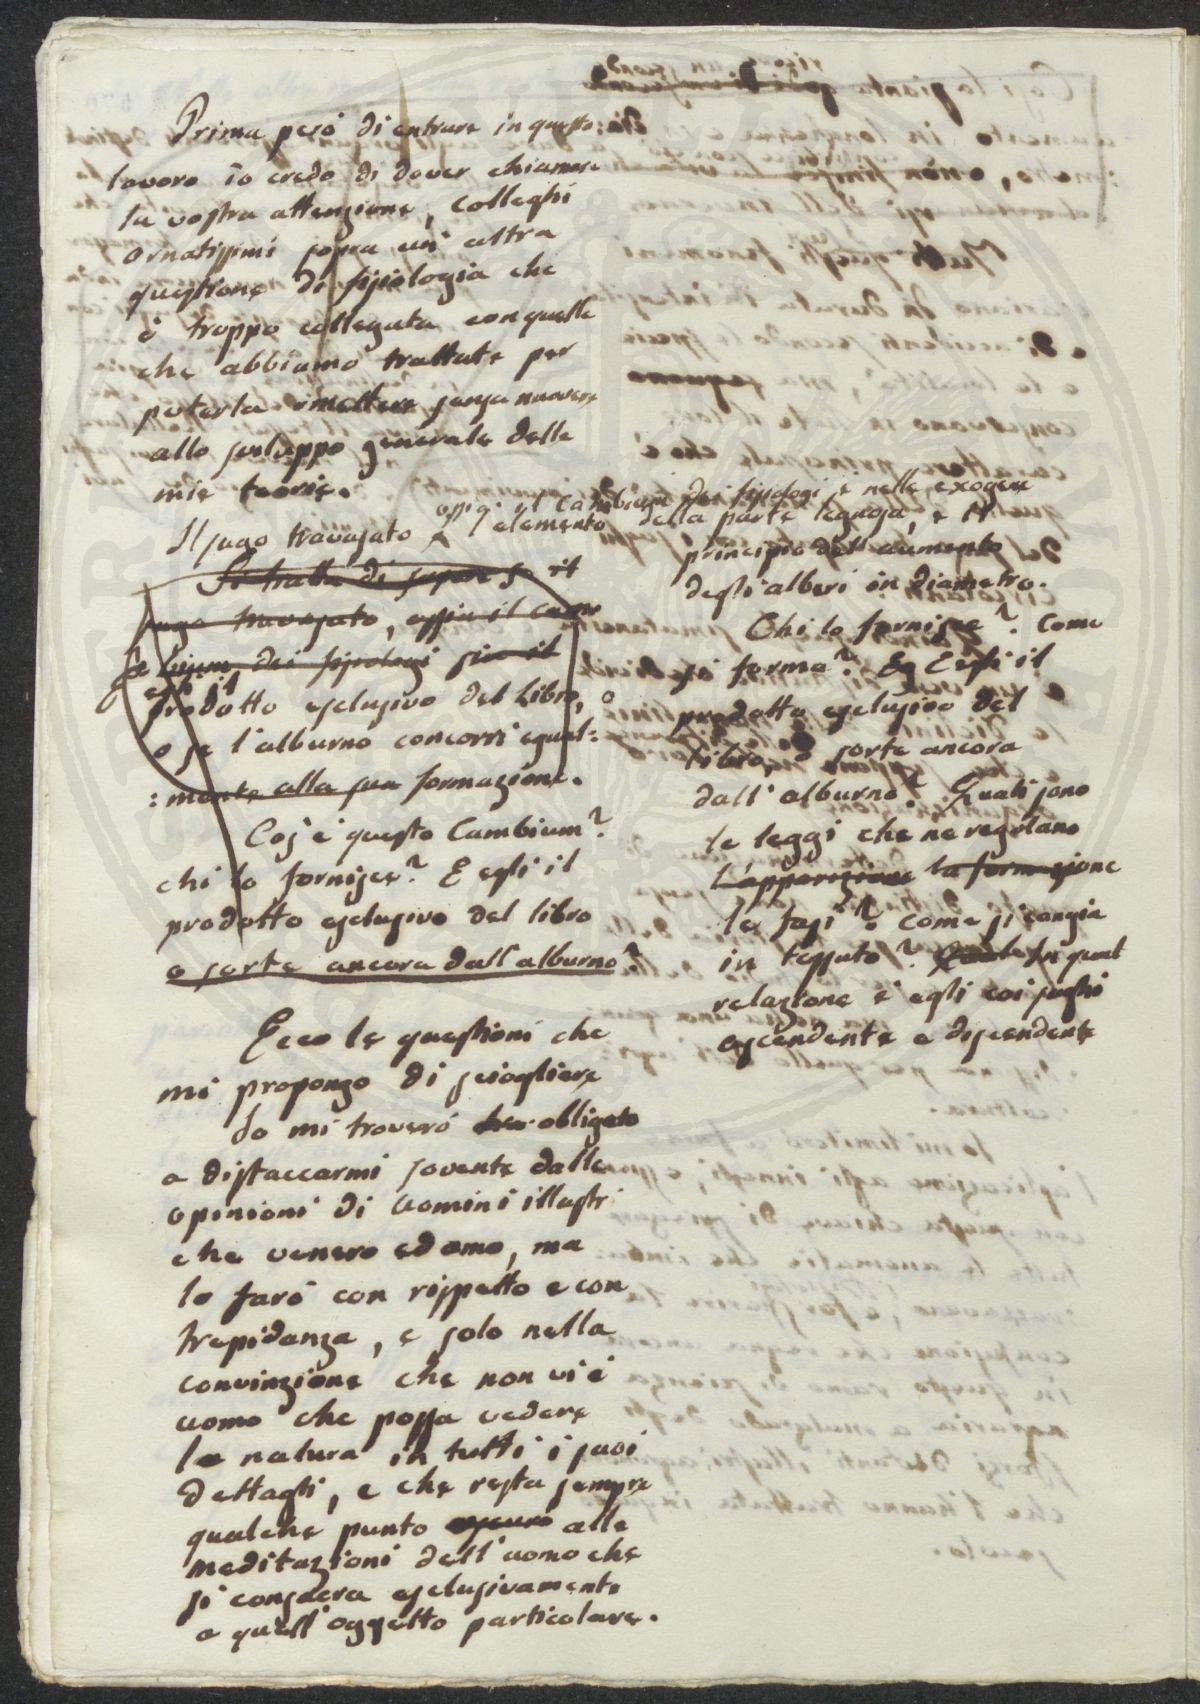 Prima però di entrare in questo
lavoro io credo di dover chiamare
la vostra attenzione, Colleghi
ornatissimi sopra un' altra
questione di fisiologia che
è troppo collegata con quelle
che abbiamo trattate per
poterla omettere senza nuocere
allo sviluppo generale delle
mie teorie.
Il sugo travasato ossia il Cambium dei fisiologi è nelle exogene
l'elemento della parte legnosa, e il
principio dell'aumento
degli alberi in diametro.
Si tratta di sapere se il
sugo travasato, ossia il Cam=
bium dei fisiologi sia il
Se egli il
prodotto esclusivo del Libro,
o se l'alburno concorri egual=
:mente alla sua formazione.
Cos' è questo Cambium?
chi lo fornisce? E egli il
prodotto esclusivo del libro
o sorte ancora dall'alburno?
Chi lo fornisce? Come
si forma? È Egli il
prodotto esclusivo del
libro, o sorte ancora
dall'alburno? Quali sono
le leggi che ne regolano
l'apparizione la formazione
le fasi? come si cangia
in tessuto? Quale In qual
relazione è egli coi sughi
ascendente e discendente
Ecco le questioni che
mi propongo di sciogliere
Io mi troverò obligato
a distaccarmi sovente dalle
opinioni di Uomini illustri
che venero ed amo, ma
lo farò con rispetto e con
trepidanza, e solo nella
convinzione che non vi è
uomo che possa vedere
la natura in tutti i suoi
dettagli, e che resta sempre
qualche punto oscuro alle
meditazioni dell'uomo che
si consacra esclusivamente
a quell'oggetto particolare.